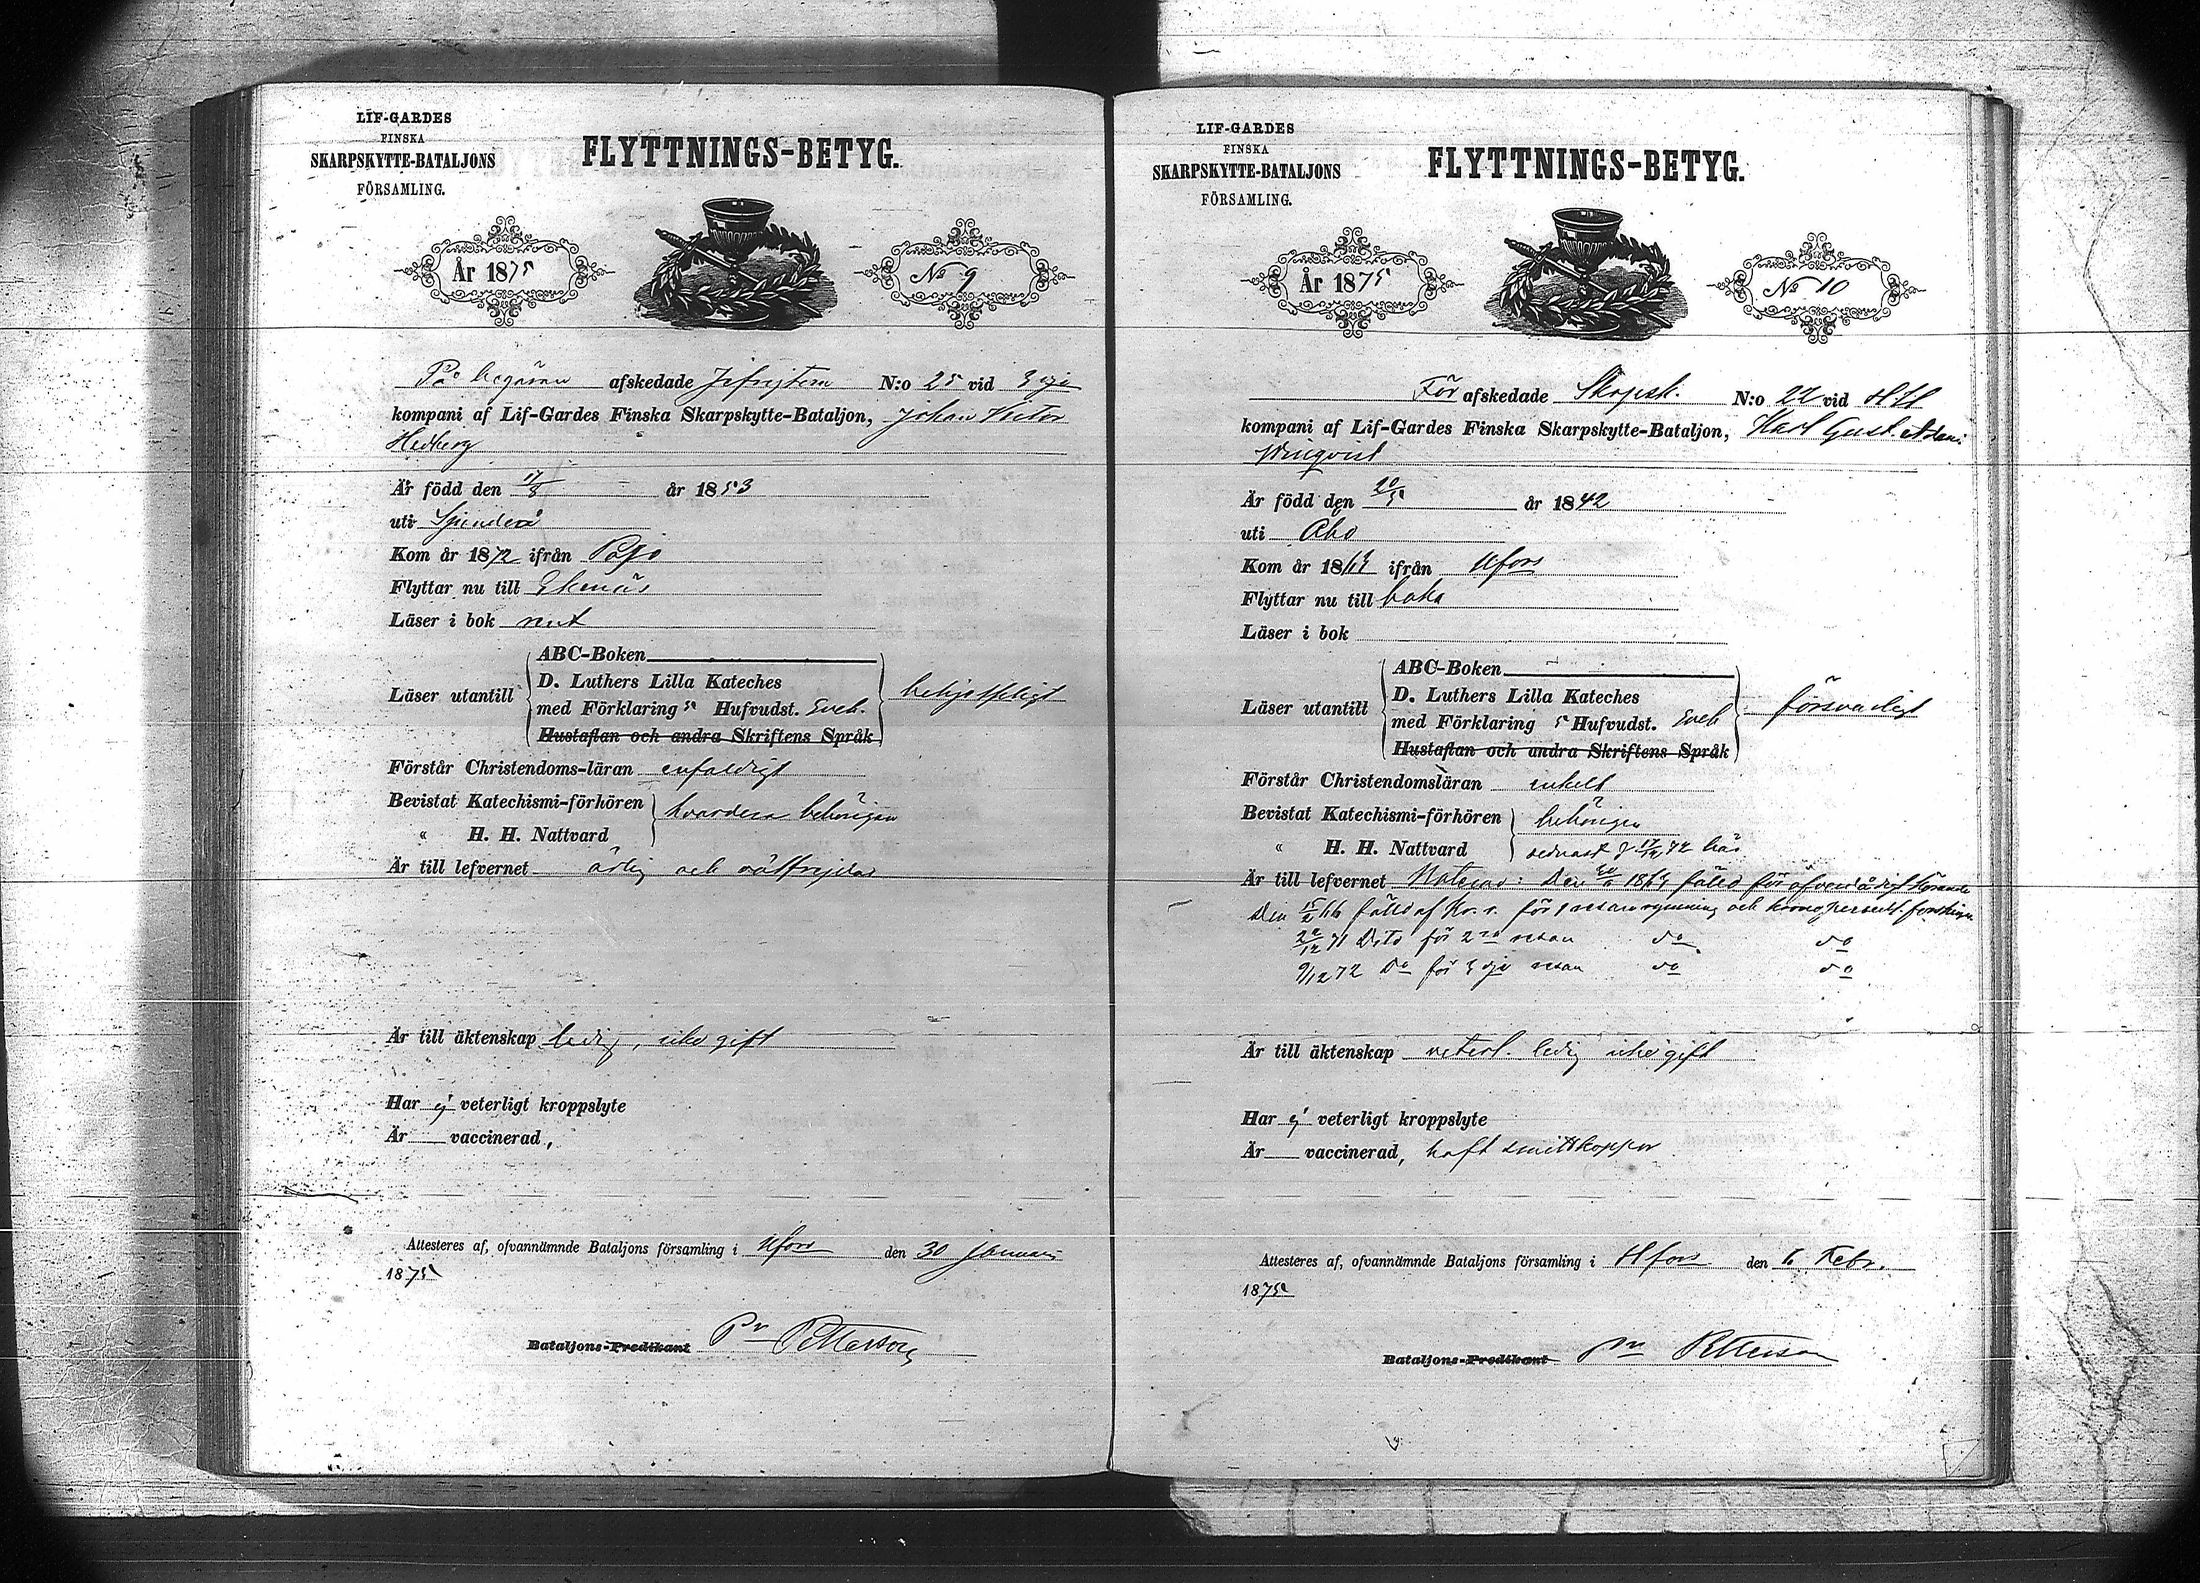 LIF-GARDES
FINSKA
SKARPSKYTTE-BATALJONS
FÖRSAMLING.
FLYTTNINGS-BETYG.
År 1875
No 9
På begäran afskedade N:o 25 vid 3 dje
kompani af Lif-Gardes Finska Skarpskytte-Bataljon, Johan Victor
Hedberg
Är född den 17/8 år 1853
uti Sjundeå
Kom år 1872 ifrån Pojo
Flyttar nu till Ekenäs
Läser i bok rent
ABC-Boken
Läser utantill D. Luthers Lilla Kateches
med Förklaring 5 Hufvudst. begripeligt
Hustaflan och andra Skriftens Språk
Förstår Christendoms-läran enfaldigt
Bevistat Katechismi-förhören hvardera behörigen
" H. H. Nattvard
Är till lefvernet ärlig och välfrejdad
Är till äktenskap ledig, icke gift
Har ej veterligt kroppslyte
Är vaccinerad,
Attesteres af, ofvannämnde Bataljons församling i Hfors den 30 Januari
1875
Bataljons-Predikant Petterson
LIF-GARDES
FINSKA
SKARPSKYTTE-BATALJONS
FÖRSAMLING.
FLYTTNINGS-BETYG.
År 1875
No 10
För afskedade Skarpsk. N:o 22 vid
kompani af Lif-Gardes Finska Skarpskytte-Bataljon, Karl Gust. Adam
Är född den 20/5 år 1842
uti Åbo
Kom år 1864 ifrån Hfors
Flyttar nu till baka
Läser i bok
ABC-Boken
Läser utantill D. Luthers Lilla Kateches
med Förklaring 5 Hufvudst. försvarligt
Hustaflan och andra Skriftens Språk
Förstår Christendomsläran enkelt
Bevistat Katechismi-förhören behörigen
" H. H. Nattvard sednast d 17/12 72 här
Är till lefvernet Noterad: Den 1864 fälld för
Den 15/2 66 fälld af Kr. r. för 1 resan rymning och
20/12 71 Dito för 2dra resan do do
9/12 72 Do för 3dje resan do do
Är till äktenskap veterl. ledig icke gift
Har ej veterligt kroppslyte
Är vaccinerad, haft smittkoppor
Attesteres af, ofvannämnde Bataljons församling i Hfors den 6 Febr.
1875
Bataljons-Predikant Petterson